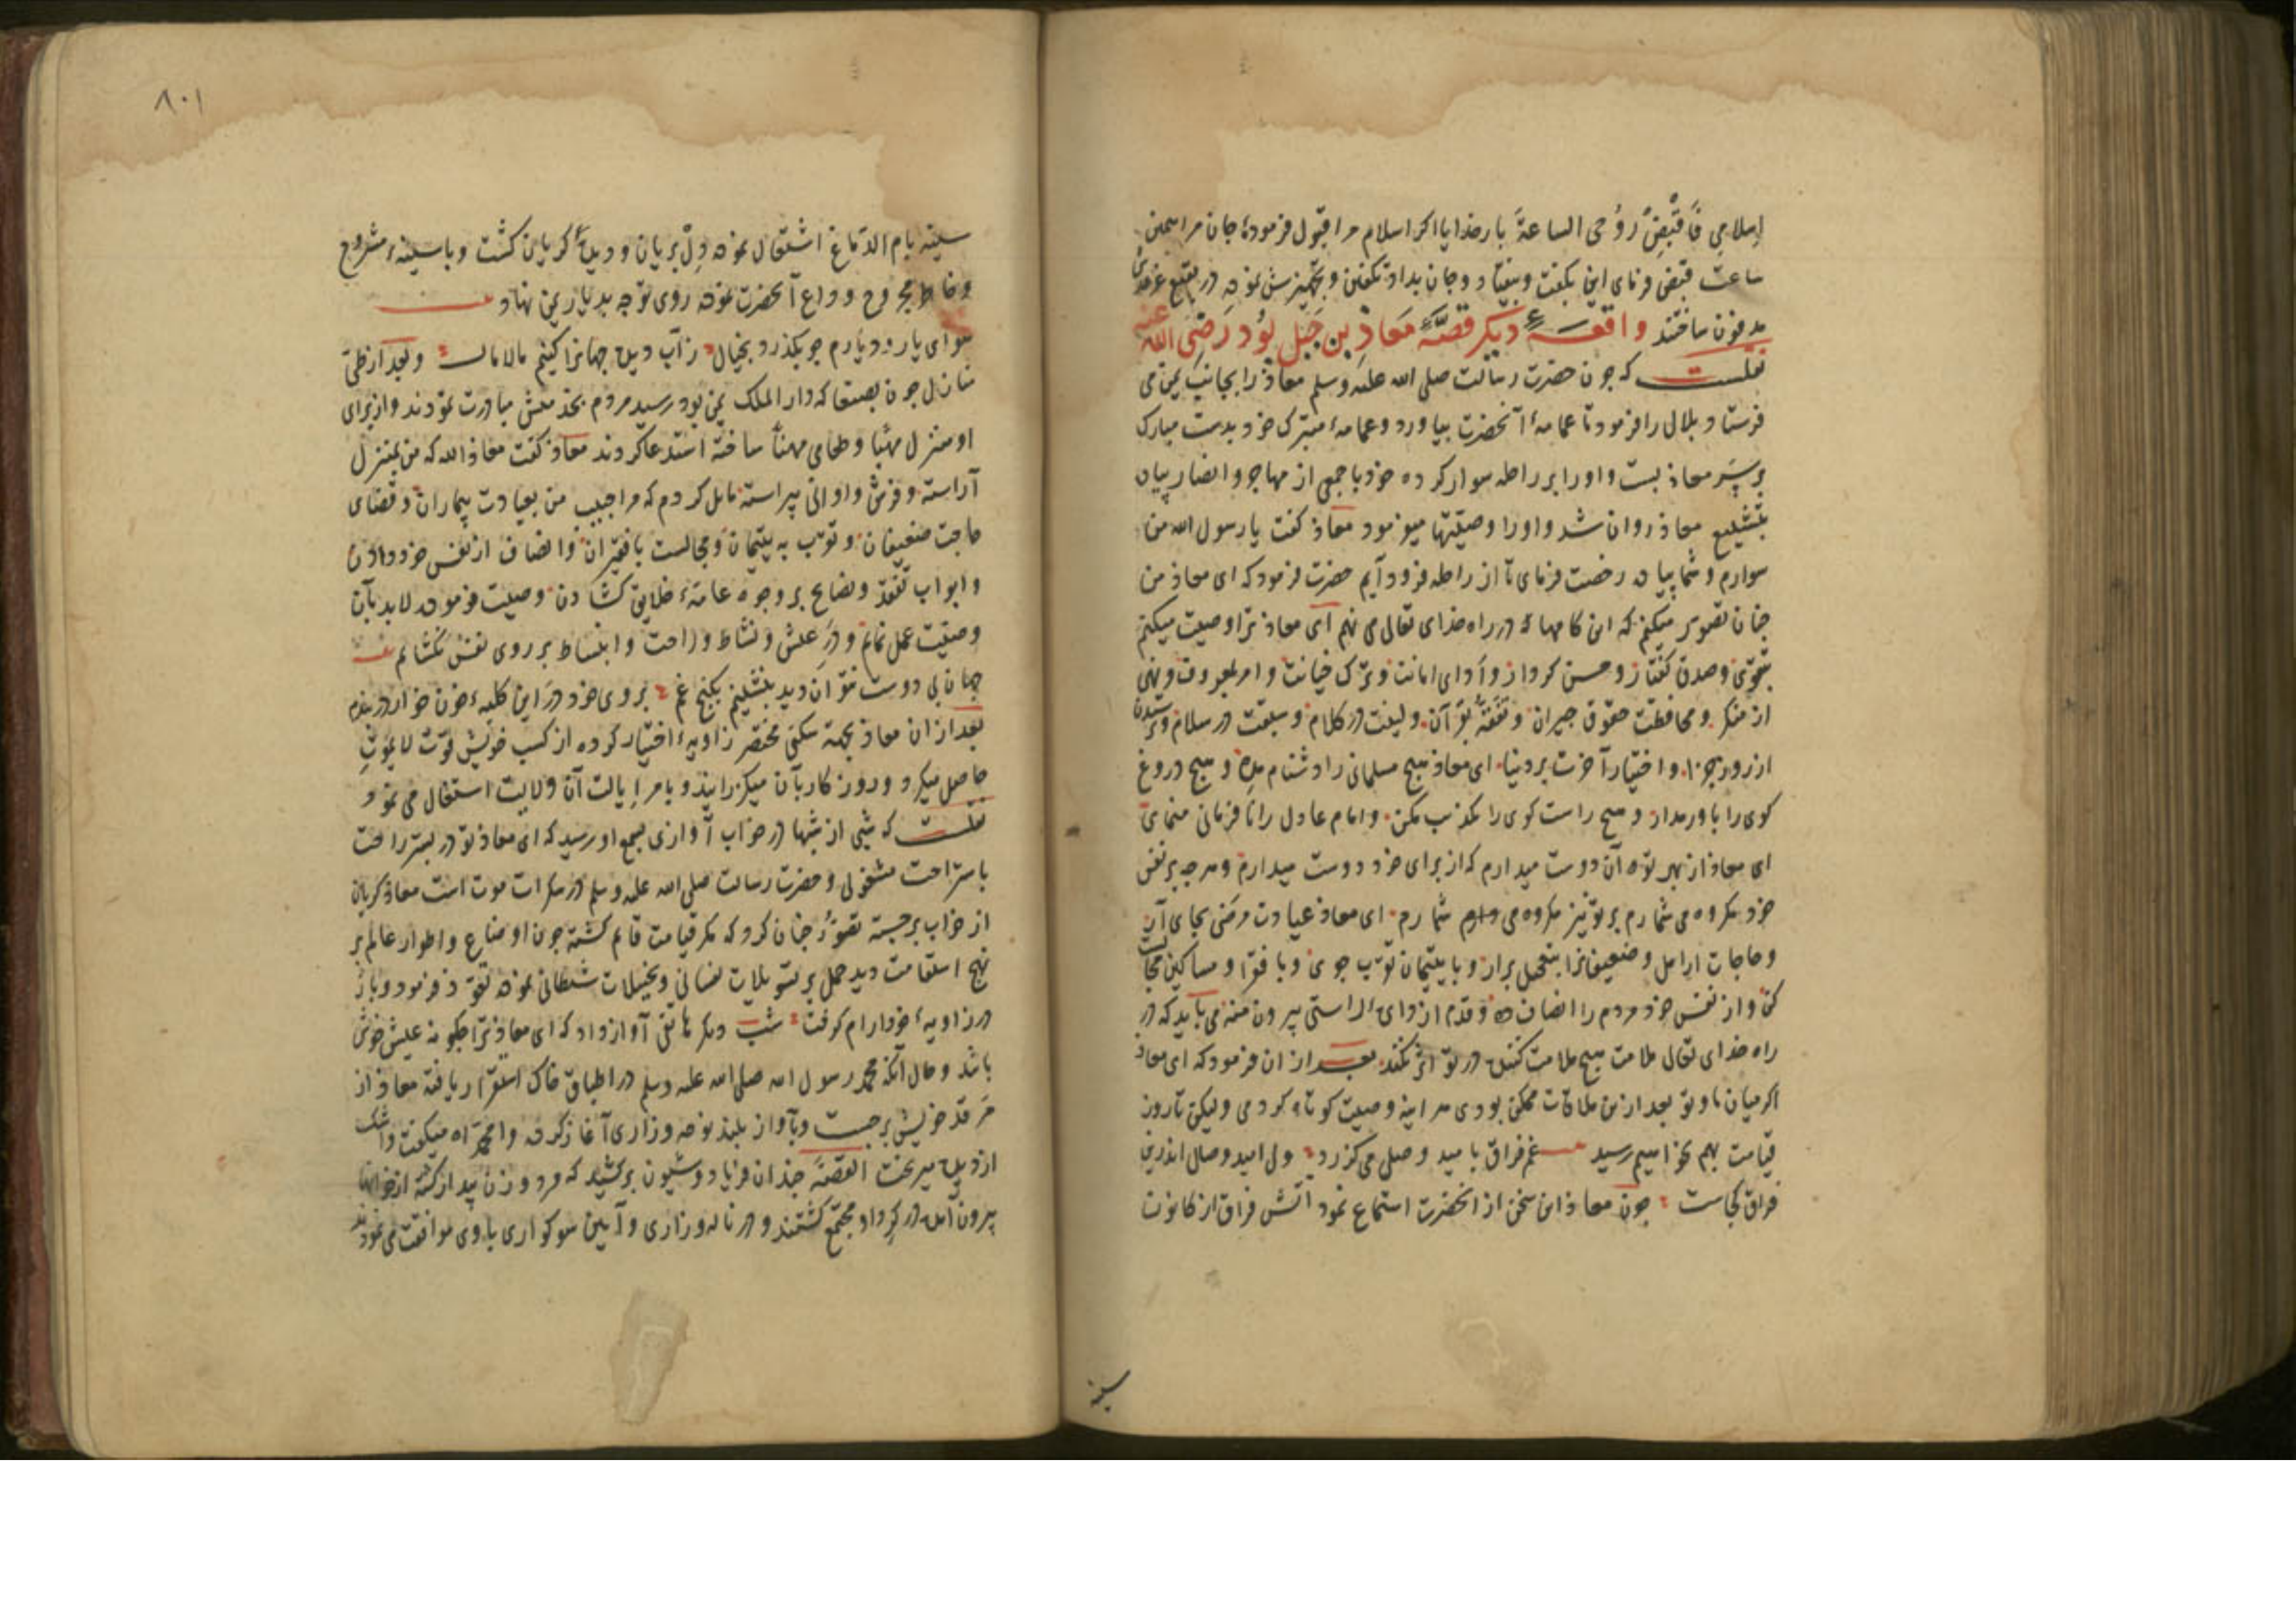 اِسلامِی فَاَقبِض رُوحی الساعةَ بار خدایا اکر اسلام مرا قبول فرمودهٔ جان مرا همین
ساعت قبض فرمای این بکفت و بیفتاد و جان بداد تکفین و تجهیزش نموده در بقیع غرقد
مدفون ساختند واقعهٔ دیکر قصّهٔ مَعاذ بن جَبَل بُود رَضی الله عنه
نقلست که چون حضرت رسالت صلی الله علیه وسلم معاذ را بجانب یمن می
فرستاد بلال را فرمود تا عمامهٔ آنحضرت بیاورد و عمامهٔ متبرک خود بدست مبارک
بر سَر معاذ بست و او را بر راحله سوار کرده خود با جمعی از مهاجر و انصار پیاده
بتشییع معاذ روان شد و او را وصیّتها میفرمود معاذ کفت یا رسول الله من
سوارم و شما پیاده رخصت فرمای تا از راحله فرود آیم حضرت فرمود که ای معاذ من
چنان تصور میکنم که این کامها که در راه خدای تعالی می نهم ای معاذ ترا وصیت میکنم
بتقوی و صدق کفتار و حسن کردار و اَدای امانت و ترک خیانت و امر بمعروف و نهی
از منکر و محافظت حقوق جیران و تَفَقُّه بقرآن و لینت در کلام و سبقت در سلام و ترسیدن
از روز جزا و اختیار آخرت بر دنیا ای معاذ هیچ مسلمانی را دشنام مده و هیچ دروغ
کوی را باور مدار و هیچ راست کوی را تکذیب مکن و امام عادل را نافرمانی منمای
ای معاذ از بهر تو آن دوست میدارم که از برای خود دوست میدارم و هر چه بر نفس
خود مکروه می شمارم بر تو نیز مکروه می دارم شمارم ای معاذ عیادت مرضی بجای آر
و حاجات ارامل و ضعیفانرا متحمل برار و با یتیمان تقرب جوی و با فقرا و مساکین مجالست
کن و از نفس خود مردم را انصاف ده و قدم از دای راستی بیرون منه می باید که در
راه خدای تعالی ملامت هیچ ملامت کننده در تو اثر نکند بعد از ان فرمود که ای معاذ
اکر میان ما و تو بعد ازین ملاقات ممکن بودی هر اینه وصیت کوتاه کردمی ولیکن تا روز
قیامت بهم نخواهیم رسید غم فراق بامید وصل می کذرد ولی امید وصال اندرین
فراق کجاست چون معاذ این سخن از انحضرت استماع نمود اتش فراق از کانون
سینه
۸۰۱
سینه بام الدّماغ اشتعال نموده دل بریان و دیده کریان کشت و با سینهٔ مشروح
و خاطر مجروح وداع آنحضرت نموده روی توجه بدیار یمن نهاد
هوای یار و دیارم چو بکذرد بخیال ز آب دیده جهانرا کنیم مالامال و بعد از طیّ
منازل چون بصنعا که دار الملک یمن بود رسید مردم بخدمتش مبادرت نمودند و از برای
او منزل مهیّا و طعامی مهنّأ ساخته استدعا کردند معاذ کفت معاذ الله که من بمنزل
آراسته و فرش و اوانی پیراسته مایل کردم که مرا حبیب من بعیادت بیماران و قضای
حاجت ضعیفان و تقرب به یتیمان و مجالست با فقیران و انصاف از نفس خود دادن
و ابواب تفقد و نصایح بر وجوه عامهٔ خلایق کشادن وصیت فرموده لابد بآن
وصیّت عمل نمایم و دَرِ عیش و نشاط و راحت و انبساط بر روی نفس نکشایم
جهان بی دوست نتوان دید بنشینم بکنج غم بروی خود دَرِ این کلبهٔ خون خوار در بندم
بعد از ان معاذ بجهة سکنی مختصر زاویهٔ اختیار کرده از کسب خویش قوت لا یموت
حاصل میکرد و روزکار بآن میکذرانید و بامر اِیالت آن ولایت اشتغال می نمود
نقلست که شبی از شبها در خواب آوازی بسمع او رسید که ای معاذ تو در بستر راحت
باستراحت مشغولی و حضرت رسالت صلی الله علیه وسلم در سکرات موت است معاذ کریان
از خواب برجسته تصوّر چنان کرد که مکر قیامت قایم کشته چون اوضاع و اطوار عالم بر
نهج استقامت دید حمل بر تسویلات نفسانی و تخیلات شیطانی نموده تعوّذ فرمود و باز
در زاویهٔ خود آرام کرفت شب دیکر هاتفی آواز داد که ای معاذ ترا چکونه عیش خوش
باشد و حال آنکه محمد رسول الله صلی الله علیه وسلم در اطباق خاک استقرار یافته معاذ از
مَرقد خویش برجست و بآواز بلند نوحه و زاری آغاز کرده وا محمّداه میکفت و اشک
از دیده میریخت القصّهَ چندان فریاد و شیون برکشید که مرد و زن بیدار کشته از خوابها
بیرون آمده در کِرد او مجتمع کشتند و در ناله و زاری و آیین سوکواری با وی موافقت می نمودند